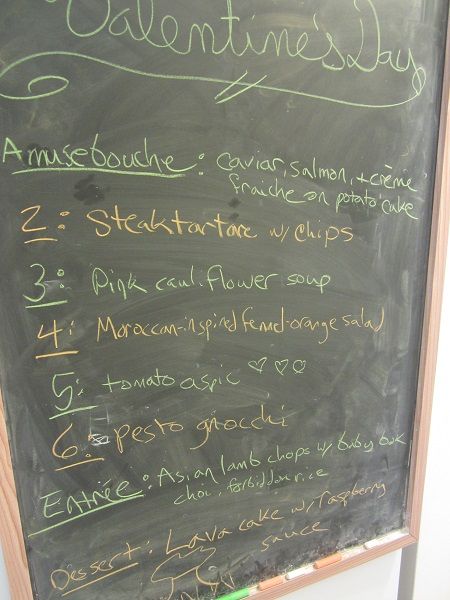 Valentine's Day
Amusebouche: caviar, salmon, + crème
fraiche on potato cake
2: Steak tartare w/ chips
3: Pink cauliflower soup
4: Moroccan-inspired fennel-orange salad
5: tomato aspic ♡♡♡
6: pesto gnocchi
Entrée: Asian lamb chops w/ baby bok
choi, forbidden rice
Dessert: Lava cake w/ raspberry
sauce